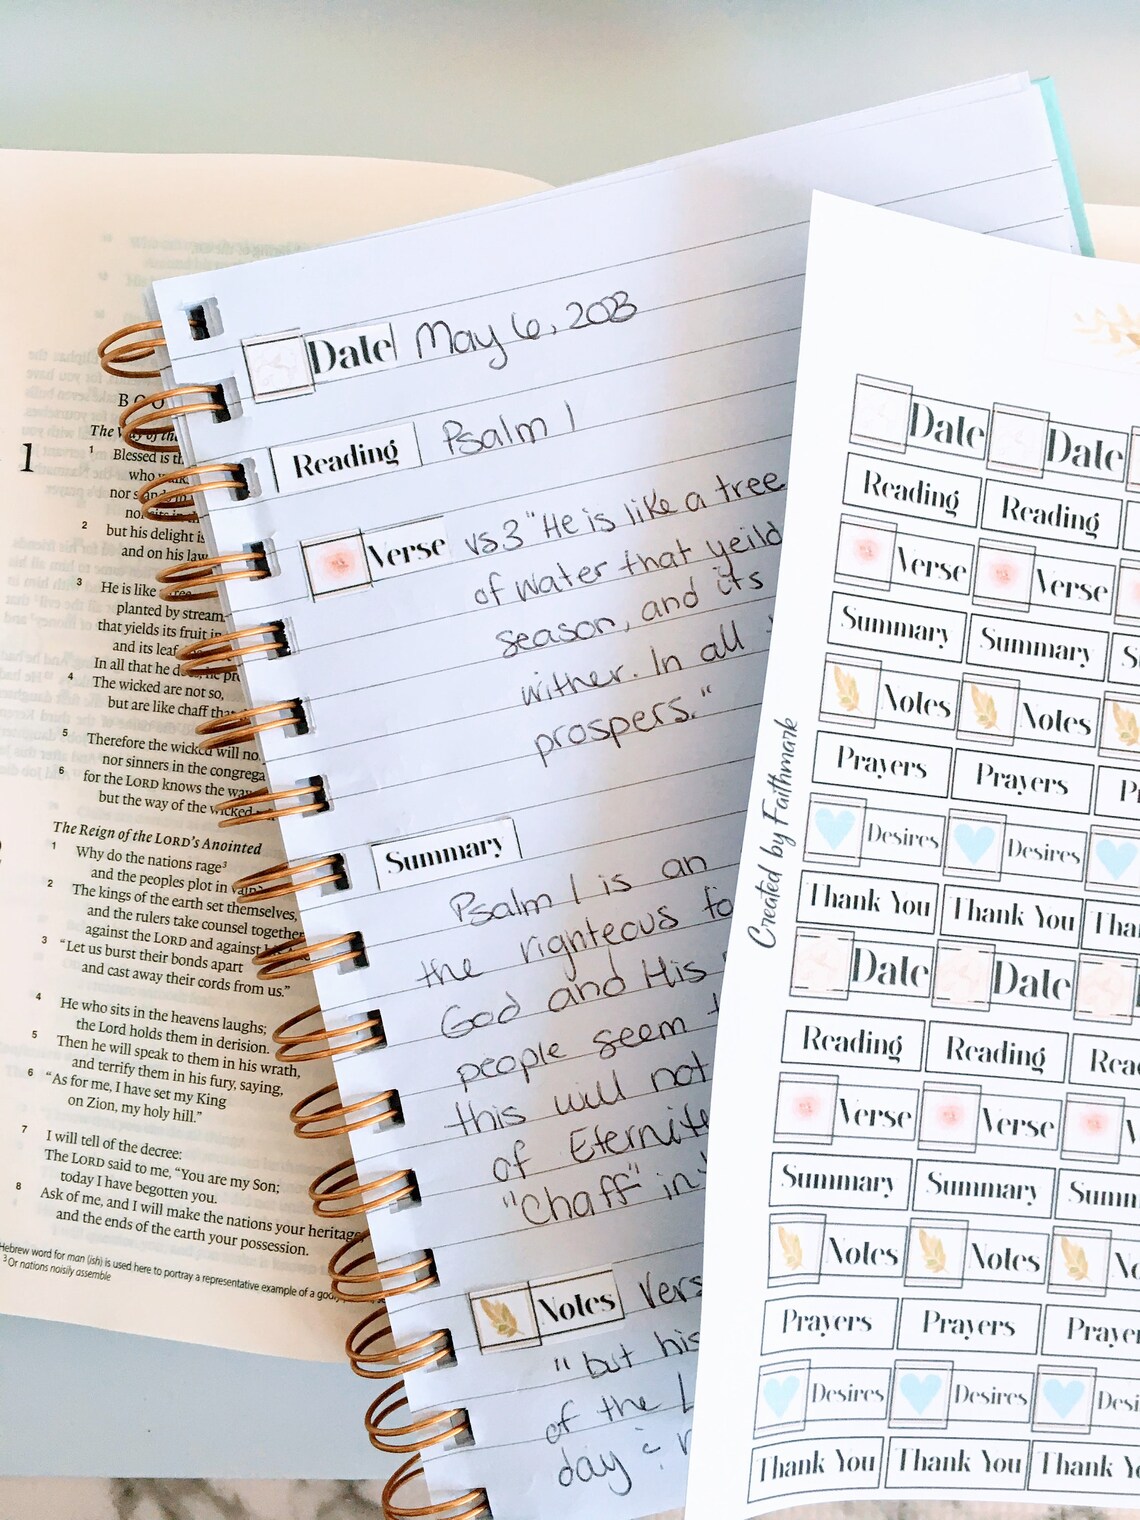 BOO
The Way of the
1
1 Blessed is th
who walk
nor stand in
nor sits in
2 but his delight is
and on his law
3 He is like a tree
planted by stream
that yields its fruit in
and its leaf
In all that he does, he pr
4 The wicked are not so,
but are like chaff tha
5 Therefore the wicked will no
nor sinners in the congrega
6 for the LORD knows the way
but the way of the wicked
The Reign of the LORD'S Anointed
1 Why do the nations rage³
and the peoples plot in vain?
2 The kings of the earth set themselves,
and the rulers take counsel together
against the LORD and against
3 "Let us burst their bonds apart
and cast away their cords from us."
4 He who sits in the heavens laughs;
the Lord holds them in derision.
5 Then he will speak to them in his wrath,
and terrify them in his fury, saying,
6 "As for me, I have set my King
on Zion, my holy hill."
7 I will tell of the decree:
The LORD said to me, "You are my Son;
today I have begotten you.
8 Ask of me, and I will make the nations your heritage
and the ends of the earth your possession.
Hebrew word for man (ish) is used here to portray a representative example of a
³ Or nations noisily assemble
Date May 6, 2023
Reading Psalm 1
Verse vs 3 "He is like a tree
of water that yeild
season, and its
wither. In all
prospers."
Summary
Psalm 1 is an
the righteous
God and His
people seem
this will not
of Eternite
"Chaff" in
Notes Vers
"but his
of the L
day &
Created by Faithmark
Date Date
Reading Reading
Verse Verse
Summary Summary S
Notes Notes
Prayers Prayers P
Desires Desires
Thank You Thank You Tha
Date Date
Reading Reading Rea
Verse Verse V
Summary Summary Summ
Notes Notes No
Prayers Prayers Prayer
Desires Desires Desi
Thank You Thank You Thank Y